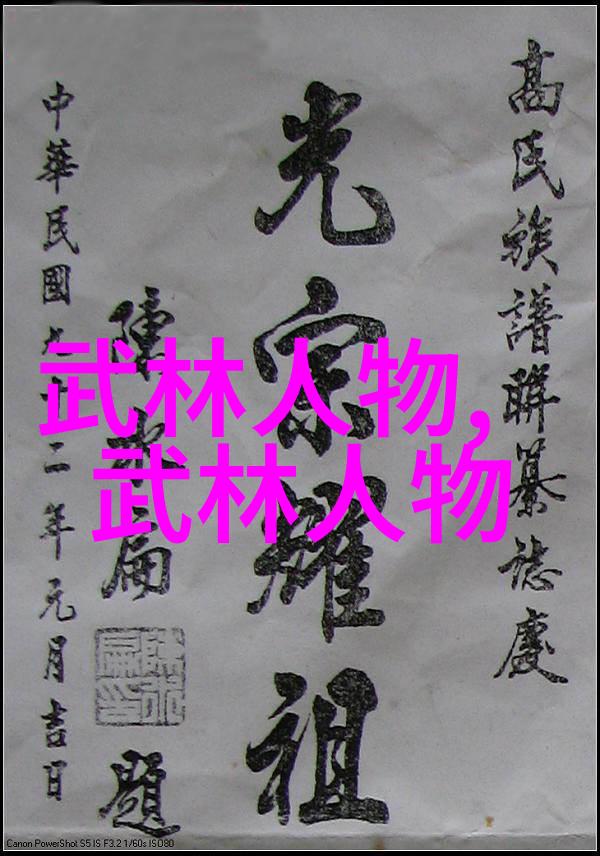 高氏族譜聯纂誌慶
光宗耀祖
陳水扁
陳水扁印
題
中華民國九十二年元月吉日
武林人物,
武林人物
Canon PowerShot S5 IS F3.2 1/60s ISO80